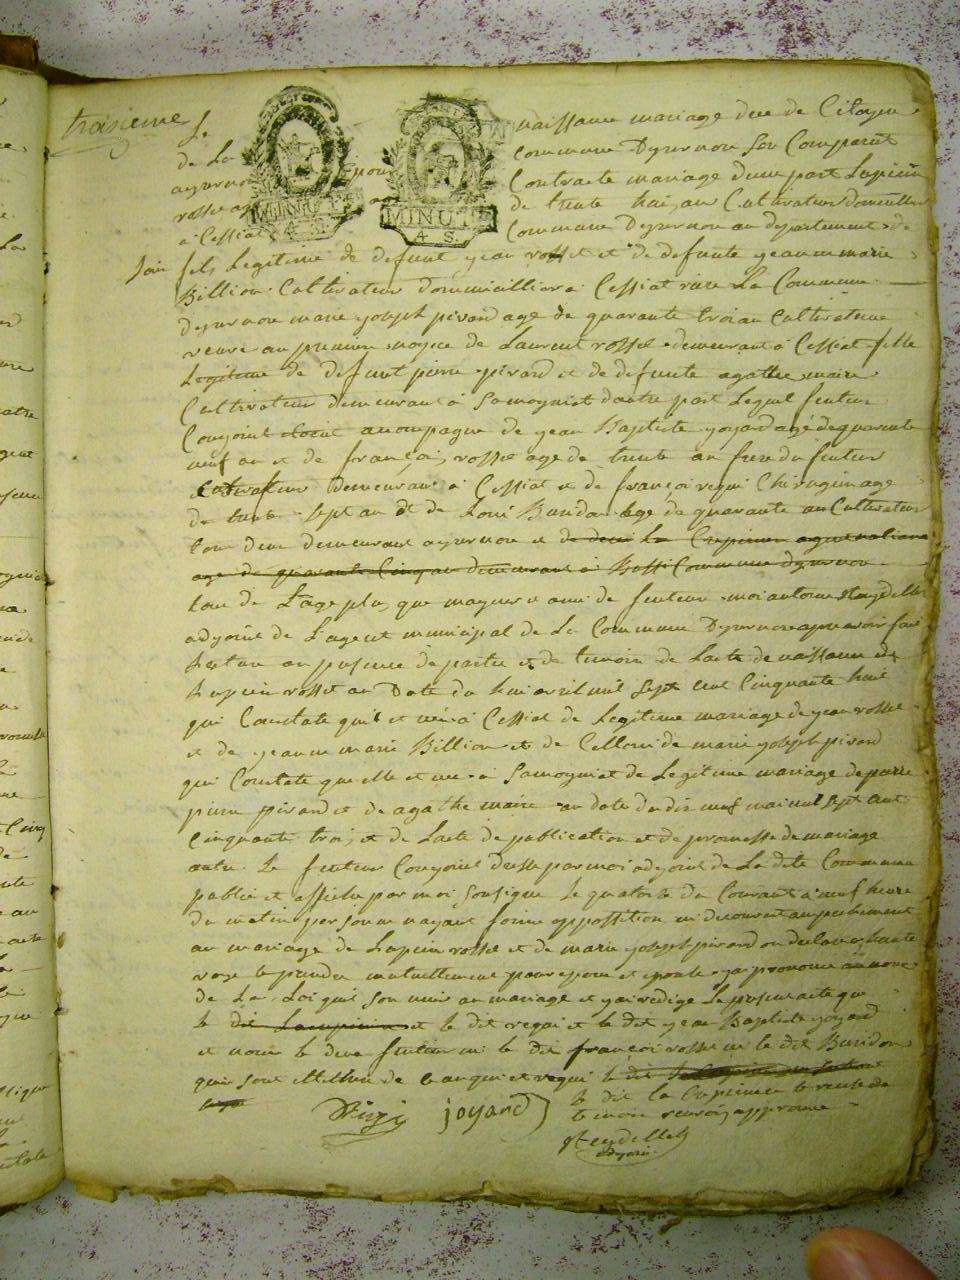 troisieme
Le naissance mariage de Citoyen
de La commune Dizernore son Comparut
azernor pour Contracte mariage dune part Lupicin
rosse ag de trente hui an Cultivateur domicilier
a Cessiat MINUTE 4 S. MINUTE 4 S. Commune Dizernore au departement de
Lain fils Legitime de defunt jean rosset et de defunte jeanne marie
Billion Cultivateur dommicillier a Cessiat rire La Commune
dizernore marie joseph pivard age de quarante troi an Cultivateure
veuve au premier noyce de Laurent rosse demeurant a Cessiat fille
Legitime de defunt pierre pivard et de defunte agathe maire
Cultivateur demeurant a Samognat dautre part Lequel futeur
Conjoint accompagne de jean Baptiste joyard agé de quarente
neuf an et de françoi rosse age de trente an frere du futeur
Cultivateur demeurant a Cessiat et de françoi regui Chirugin age
de trente sept an et de Loui Buridon age de quarante an Cultivateur
tou deux demeurant azernore et de La Cupicin
age de quarante Cinq an demeurant a Bussi Commune dizernore
tou de Lage plu que mageur et ami de futeur moi antoine staydelles
adjoint de Lagent municipal de La Commune Dizernore apre avoir fait
Lecture en presence de partie et de temoin de Lacte de naissance de
Lupicin rosset an Date du hui avril mil sept cent cinquante huit
qui Constate quil et né a Cessiat de Legitime mariage de jean rosse
et de jeanne marie Billion et de Celloui de marie joseph pivard
qui Constate que elle et nee a Samogniat de Legitime mariage de pierre
pierre pivard et de agathe maire en date du dix neuf mai mil sept cent
cinquante troi et de Lacte de publication et de promesse de mariage
entre Le futeur Conjoint dresse par moi adjoint de La dite Commune
publie et affiche par moi sousigne Le quatorze du Courant a neuf heure
du matin persoune nayant forme oppossition ni decouvert anpechement
au mariage de Lupicin rosse et de marie joseph pivard on declare a haute
voye se prandre mutuellement pour epous et epouse jai prononce au nom
de La Loi quil son unis an mariage et jai redige Le presant acte que
Le dit Lacupicin et le dit regui et le dit jean Baptiste joyard
et nom le deux futeur ni le dit françoi rosse ni le dit Buridon
quoi sont illettré de ce anqui et requi le dit
le dit la Cupicin
renvois approuve
Regui joyard
staydelles
adjoin